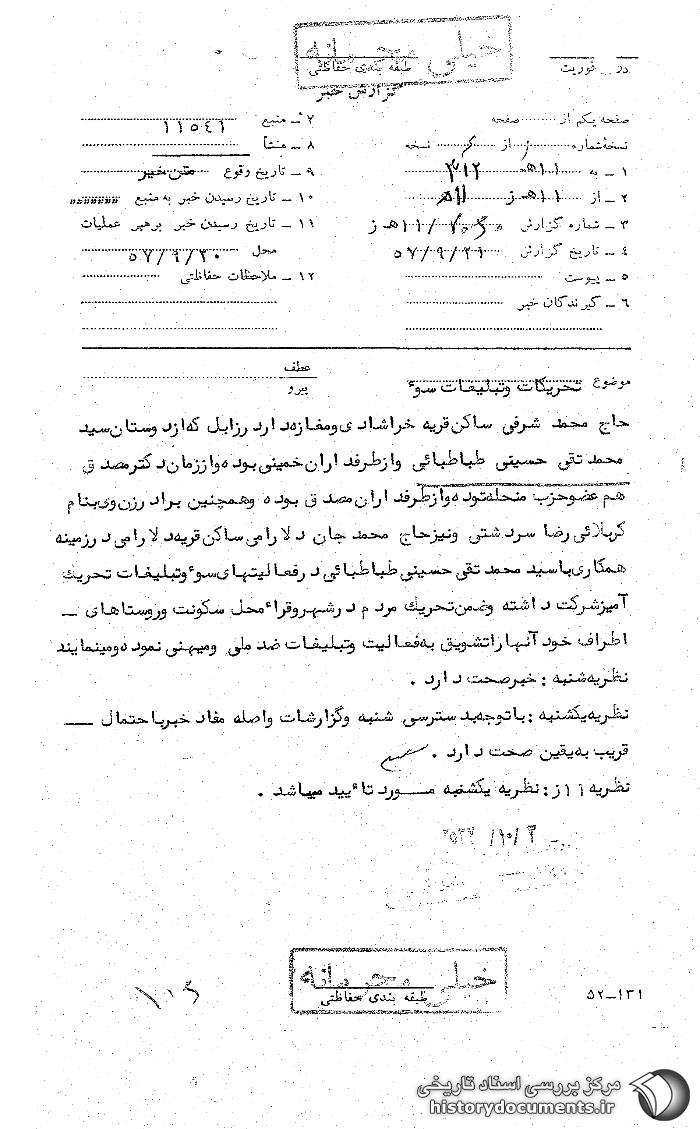 خیلی محرمانه
طبقه بندی حفاظتی
گزارش خبر
درـ فوریت
صفحه یکم از صفحه
نسخه شماره از نسخه
۱ ـ به ۱۱هـ ۳۱۲
۲ ـ از ۱۱هـ ز
۳ ـ شماره گزارش ۱۱/هـ ز
۴ ـ تاریخ گزارش ۵۷/۹/۲۱
۵ ـ پیوست
۶ ـ گیرندگان خبر
۷ ـ منبع ۱۱۵۴۱
۸ ـ منشأ
۹ ـ تاریخ وقوع متن خبر
۱۰ ـ تاریخ رسیدن خبر به منبع """""""
۱۱ ـ تاریخ رسیدن خبر برهبر عملیات
محل ۵۷/۹/۲۰
۱۲ ـ ملاحظات حفاظتی
موضوع تحریکات وتبلیغات سوء
عطف
پیرو
حاج محمد شرفی ساکن قریه خراشادی ومغازه دارد رزابل که از دوستان سید
محمد تقی حسینی طباطبائی وازطرفداران خمینی بوده واززمان دکترمصدق
هم عضوحزب منحله توده وازطرفداران مصدق بوده وهمچنین برادرزن وی بنام
کربلائی رضا سردشتی ونیزحاج محمد جان دلارامی ساکن قریه دلارامی درزمینه
همکاری باسید محمد تقی حسینی طباطبائی درفعالیتهای سوء وتبلیغات تحریک
آمیزشرکت داشته وضمن تحریک مردم درشهروقراء محل سکونت وروستاهای ـ
اطراف خود آنهاراتشویق به فعالیت وتبلیغات ضد ملی ومیهنی نموده ومینمایند
نظریه شنبه : خبرصحت دارد .
نظریه یکشنبه : باتوجه بدسترسی شنبه وگزارشات واصله مفاد خبرباحتمال ـ
قریب به یقین صحت دارد .
نظریه ۱۱ز : نظریه یکشنبه مورد تأیید میباشد .
خیلی محرمانه
طبقه بندی حفاظتی
۵۲-۱۳۱
مرکز بررسی اسناد تاریخی
historydocuments.ir